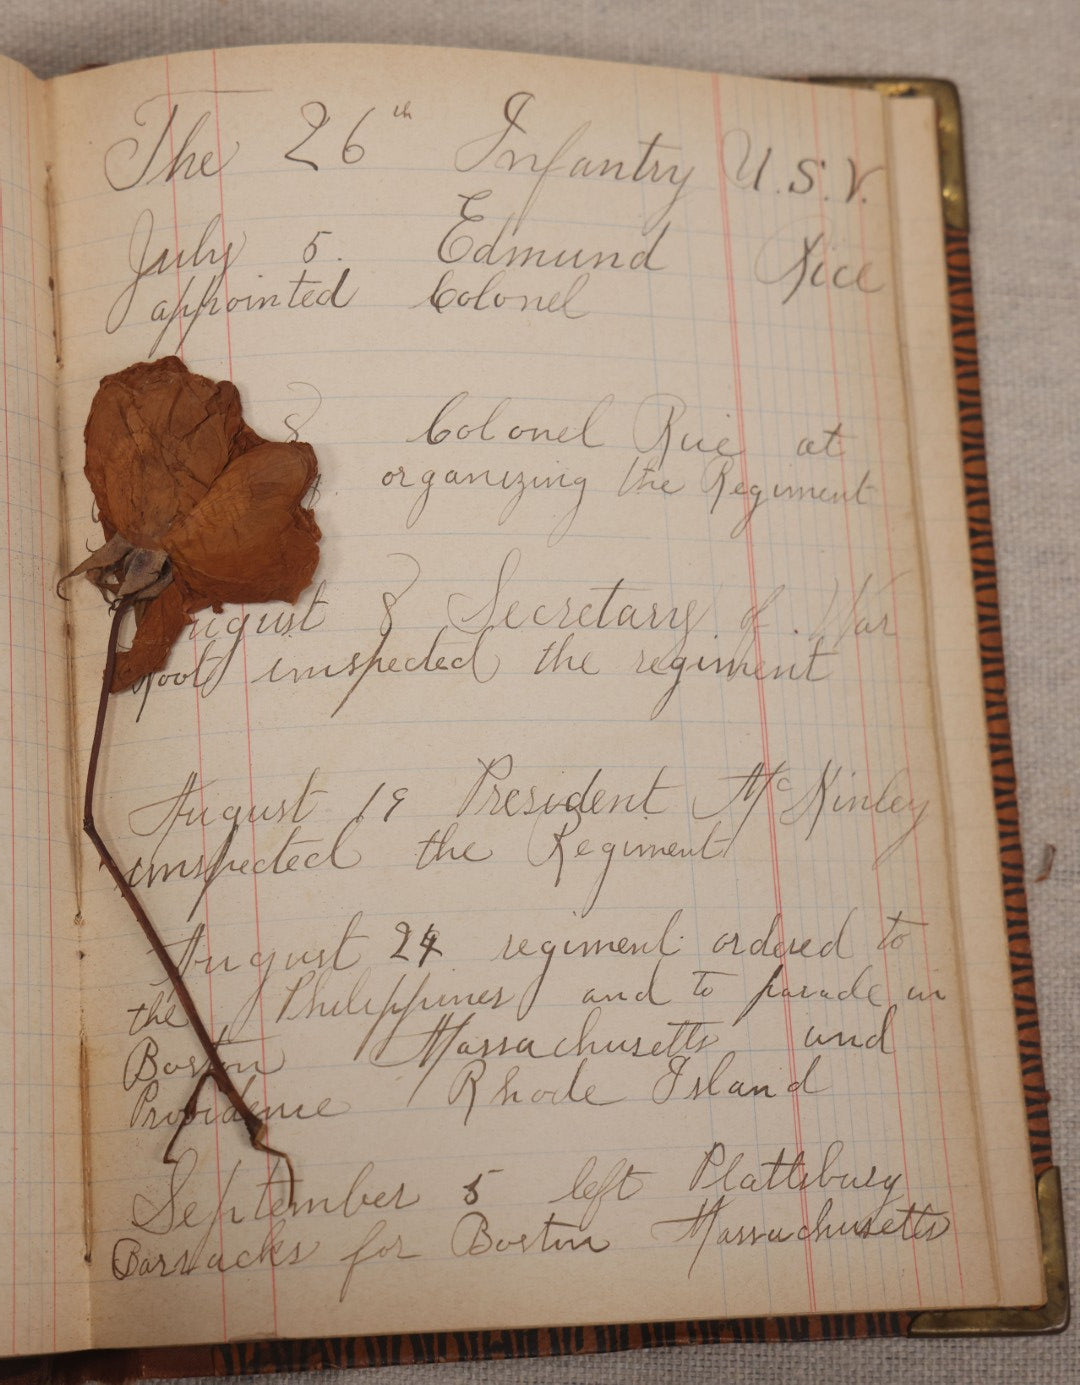 The 26th Infantry U.S.V.
July 5. Edmund Rice
appointed Colonel
8 Colonel Rice at
organizing the Regiment
August 8 Secretary of War
Root innspected the regiment
August 19 President McKinley
innspected the Regiment
August 24 regiment ordered to
the Philippines and to parade in
Boston Massachusetts and
Providence Rhode Island
September 5 left Plattsburg
Barracks for Boston Massachusetts